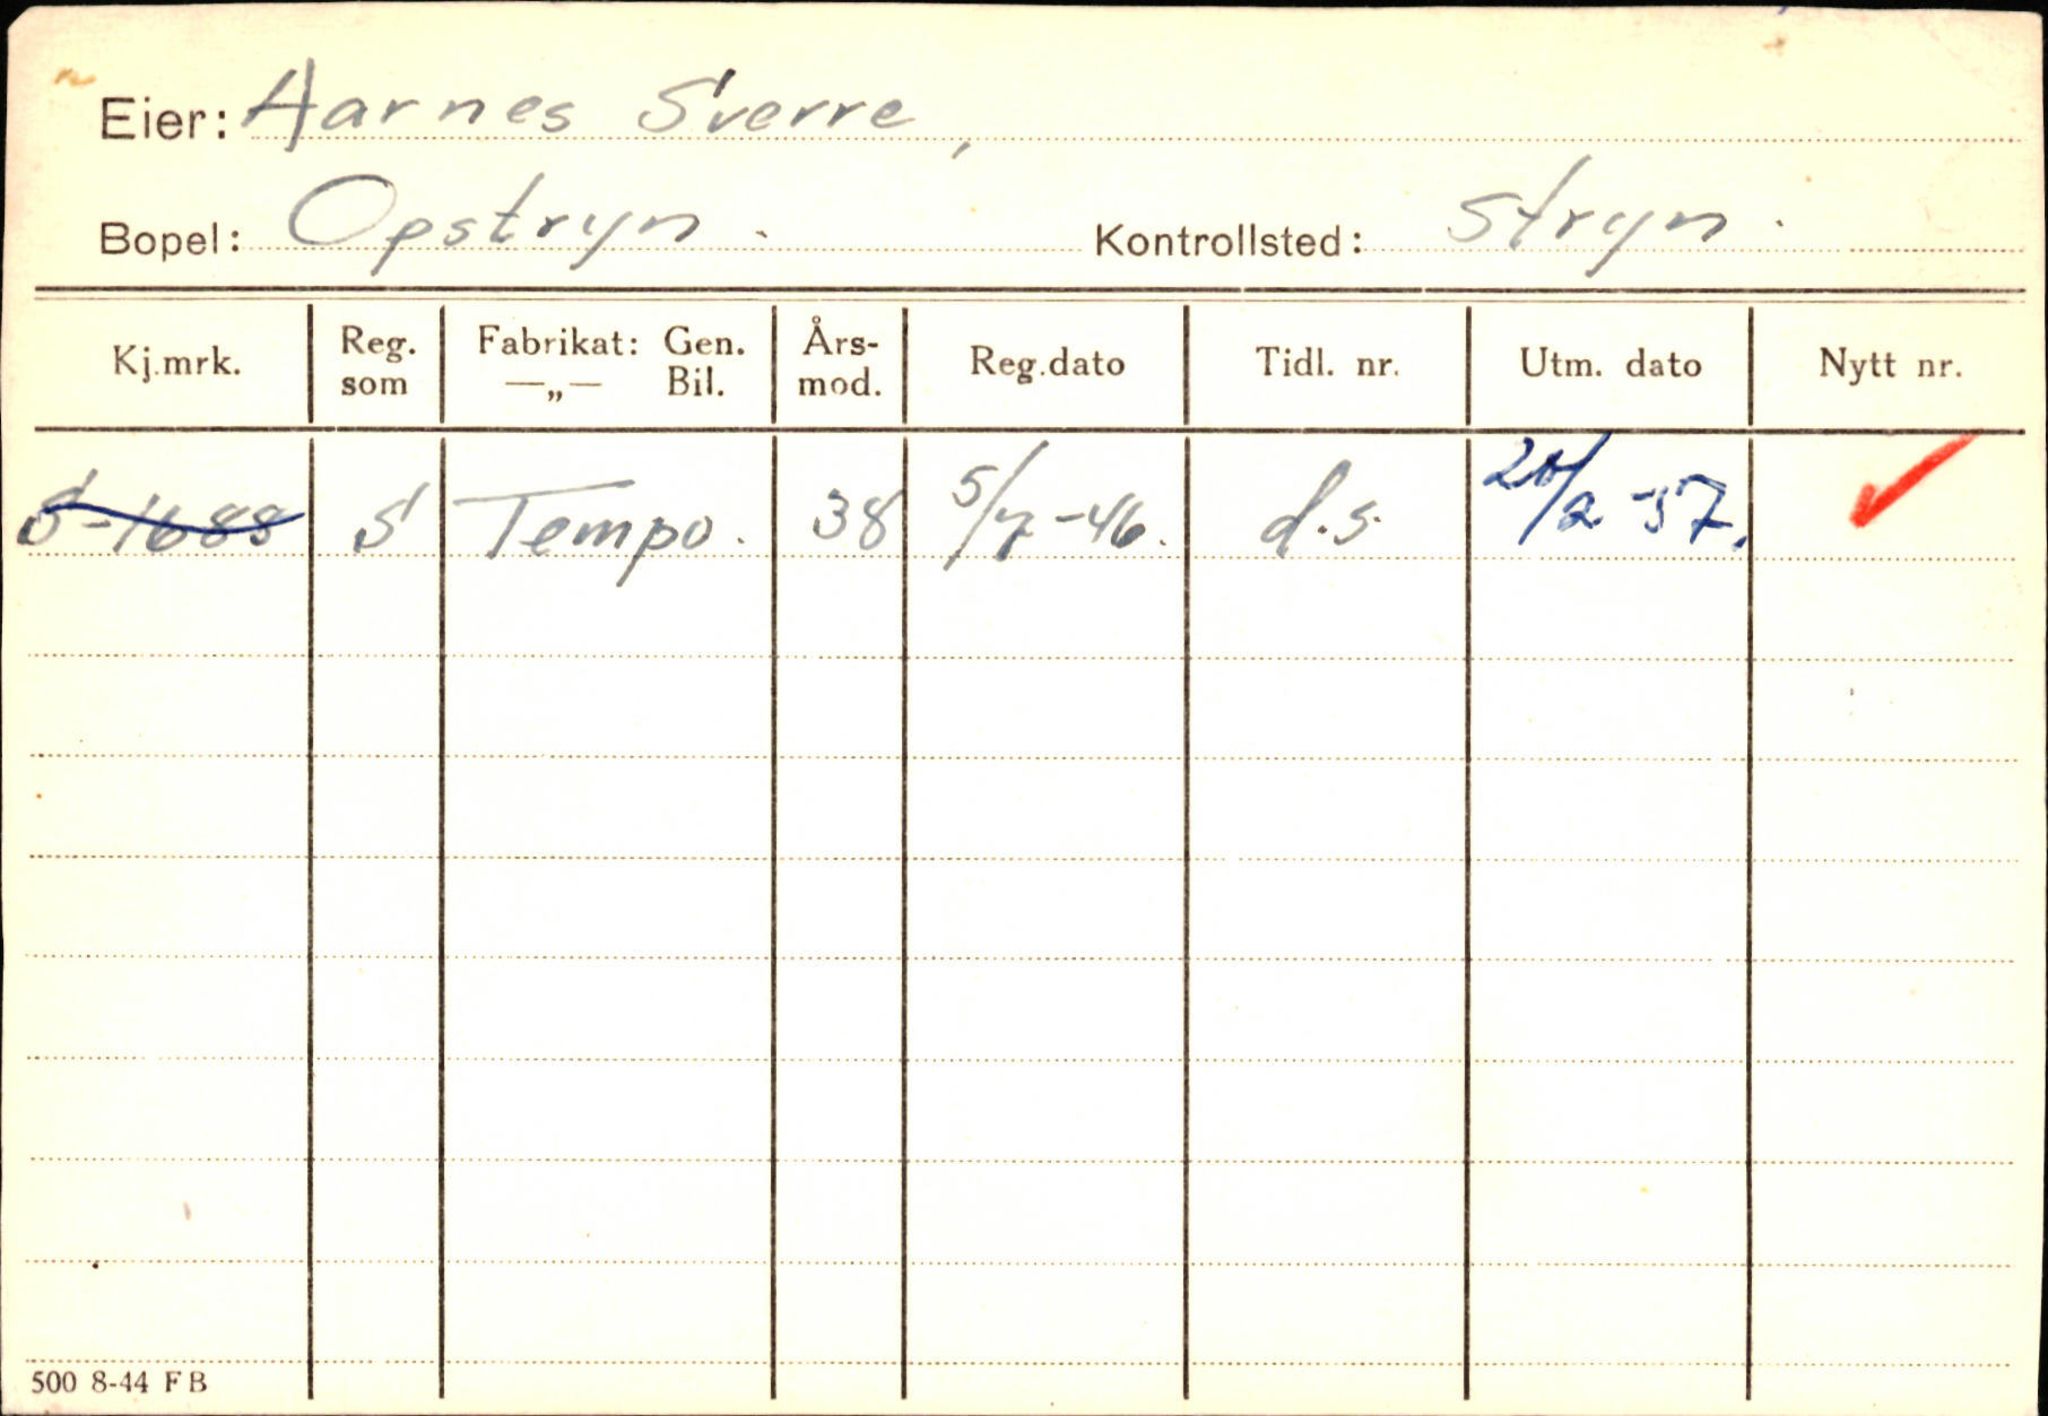 Eier: Aarnes Sverre,
Bopel: Opstryn. Kontrollsted: Stryn.
Kj.mrk. Reg. som Fabrikat: Gen. —„— Bil. Års- mod. Reg.dato Tidl. nr. Utm. dato Nytt nr.
S-1688 S Tempo. 38 5/7-46. d.s. 20/2-57.
500 8-44 FB